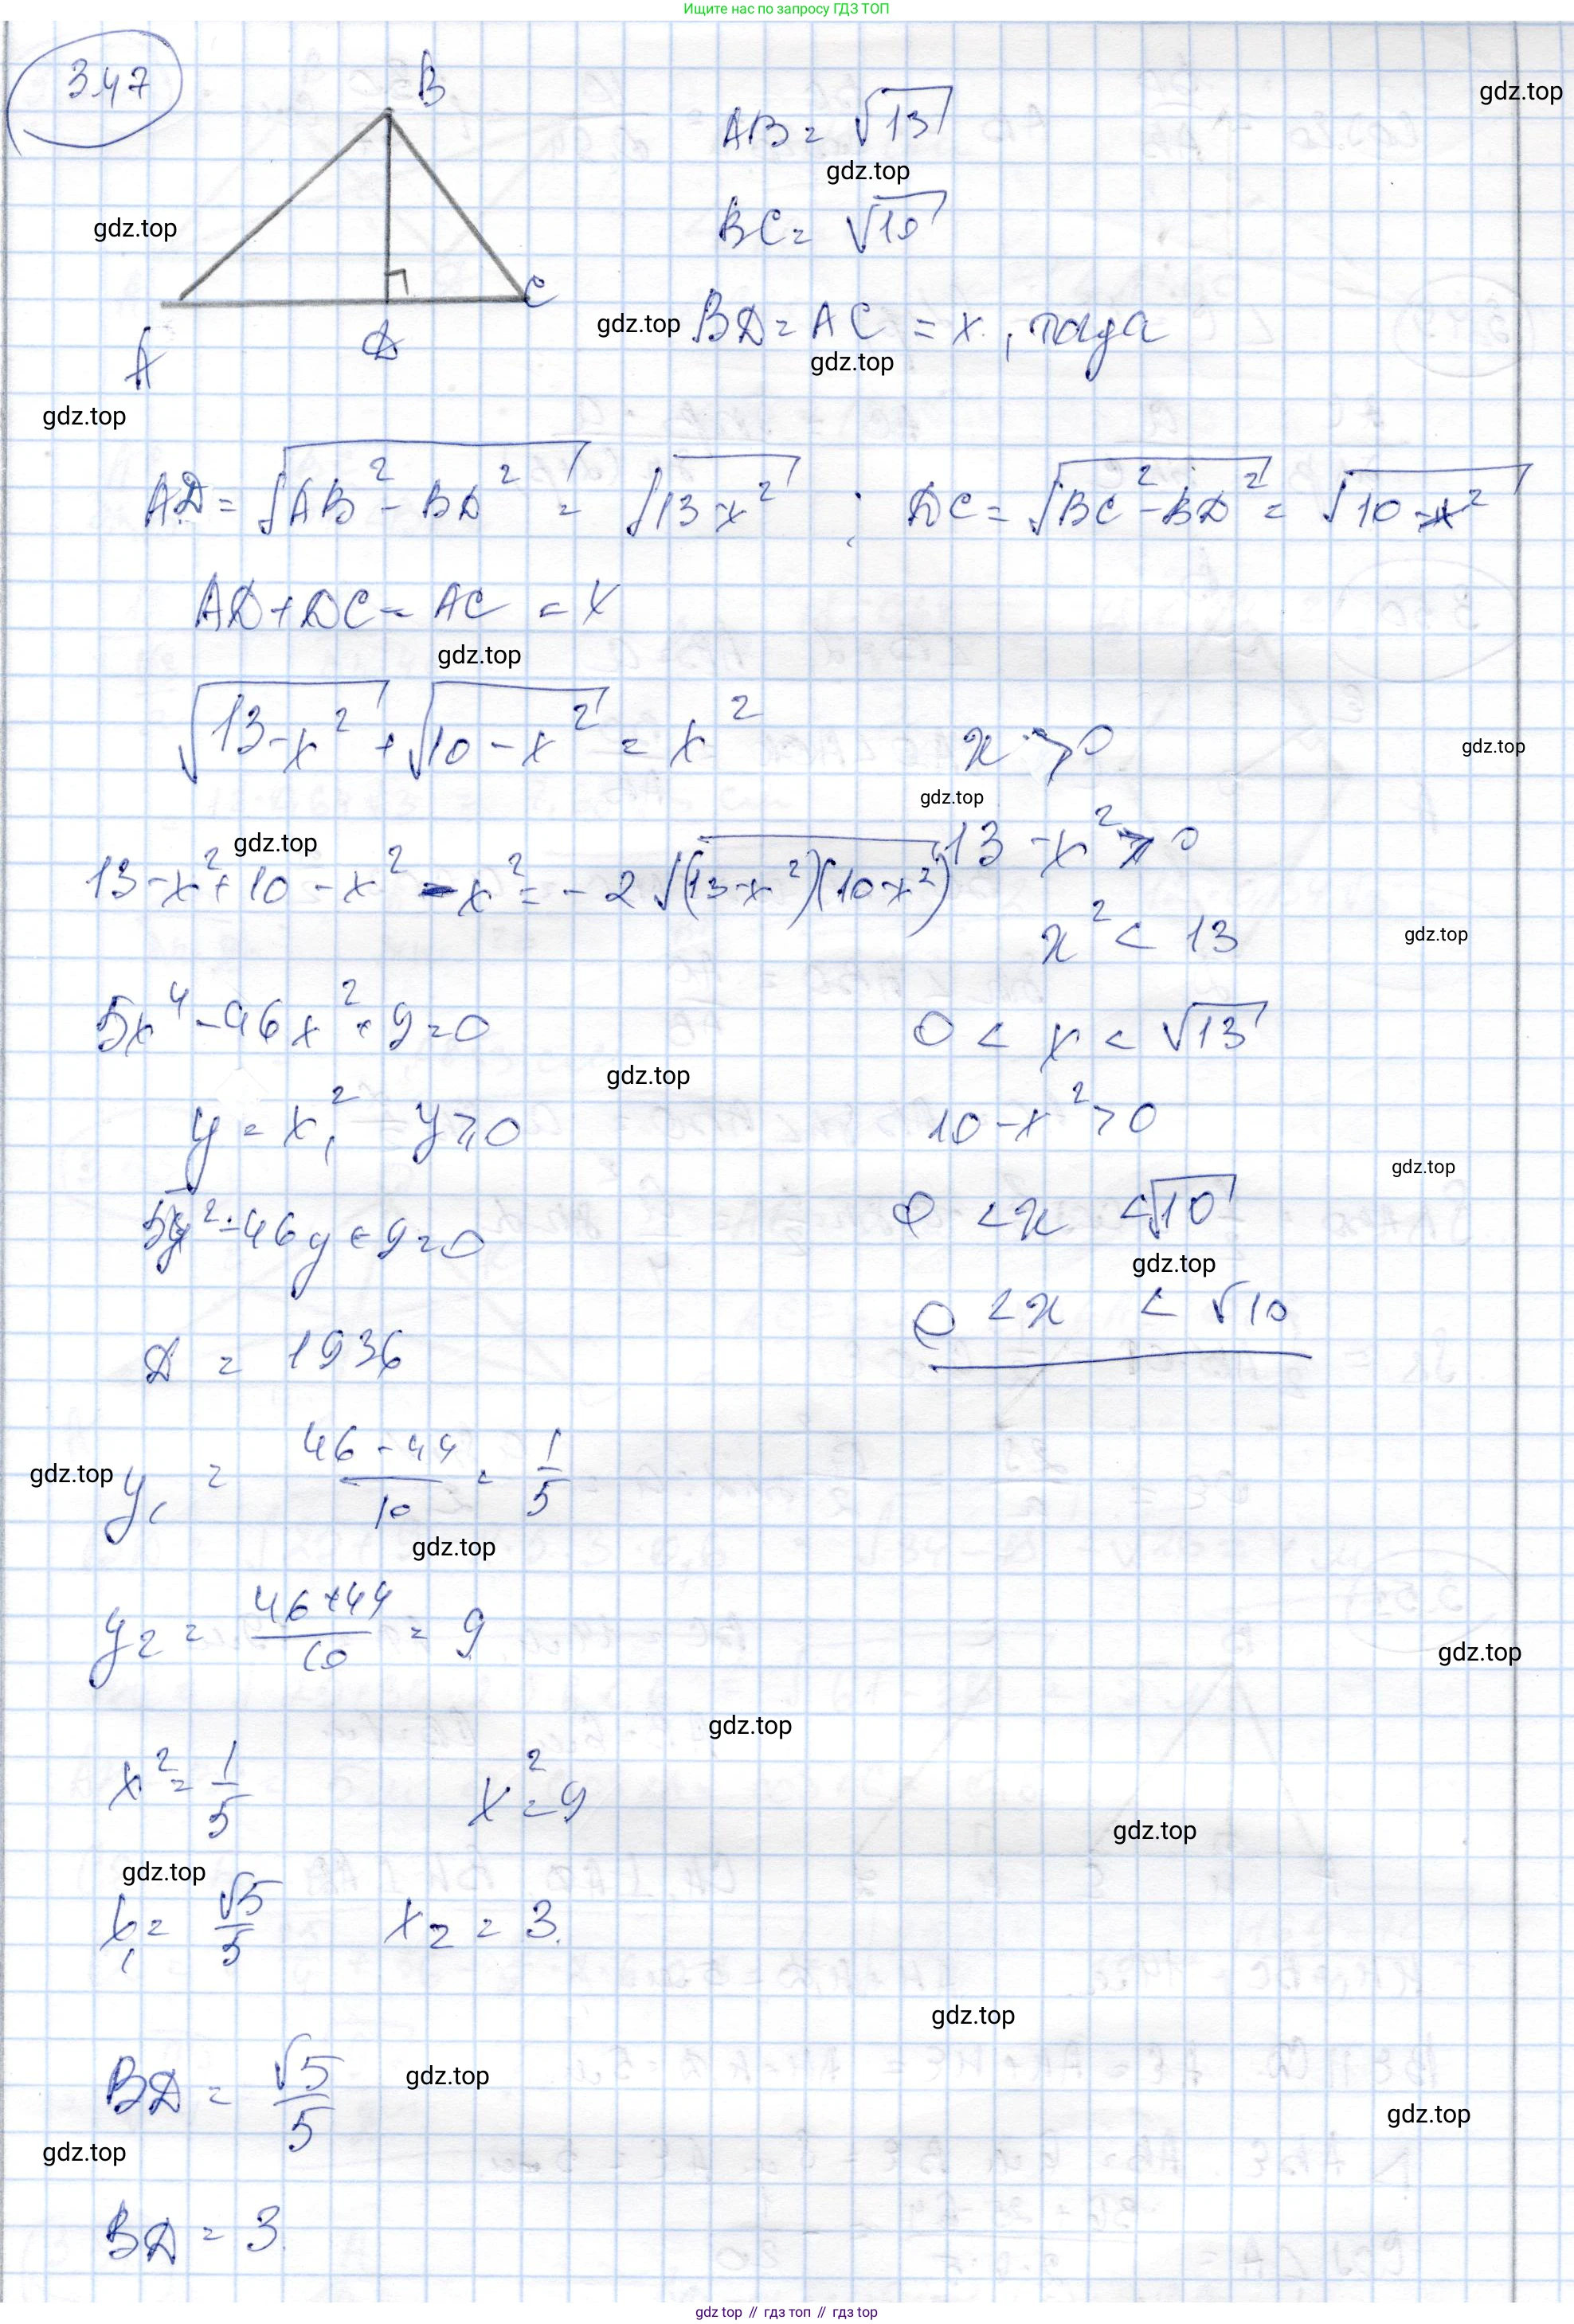 Ищите нас по запросу ГДЗ ТОП
3.47
B
AB = √13
gdz.top
gdz.top
gdz.top
BC = √10
C
gdz.top
BD = AC = x, тогда
A
D
gdz.top
gdz.top
AD = √(AB² - BD²) = √(13-x²) ; DC = √(BC² - BD²) = √(10-x²)
AD + DC = AC = x
gdz.top
√(13-x²) + √(10-x²) = x²
x > 0
gdz.top
gdz.top
gdz.top
13 - x² > 0
13-x² + 10 - x² - x² = -2√((13-x²)(10-x²))
x² < 13
gdz.top
5x⁴ - 46x² + 9 = 0
0 < x < √13
gdz.top
y = x², y ≥ 0
10 - x² > 0
gdz.top
5y² - 46y + 9 = 0
0 < x < √10
gdz.top
0 < x < √10
D = 1936
gdz.top
y₁ = (46 - 44)/10 = 1/5
gdz.top
y₂ = (46+44)/10 = 9
gdz.top
gdz.top
x² = 1/5
x² = 9
gdz.top
gdz.top
x₁ = √5/5
x₂ = 3.
gdz.top
BD = √5/5
gdz.top
gdz.top
gdz.top
BD = 3.
gdz.top // гдз топ // гдз top